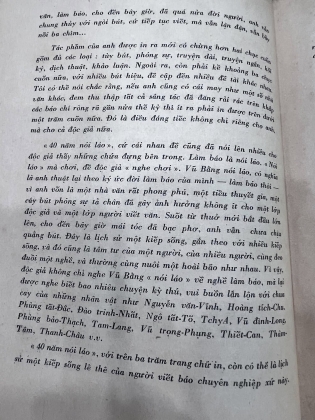 văn, làm báo, cho đến bây giờ, đã quá nửa đời người, anh vẫn
chung thủy với ngòi bút, cứ tiếp tục viết, mà vẫn lận đận, vẫn long
nổi ba chìm...
Tác phẩm của anh được in ra mới có chừng hơn hai chục cuốn
gồm đủ các loại : tùy bút, phóng sự, truyện dài, truyện ngắn, hồi
ký, dịch thuật, khảo luận. Ngoài ra, còn phải kể khoảng ba chục
cuốn nữa, với nhiều bút hiệu, đề cập đến nhiều đề tài khác nhau.
Tôi có thể nói chắc rằng, nếu anh cũng có cái may như một số nhà
văn khác, đem thu thập tất cả sáng tác đã đăng rải rác trên khắp
các báo chí ròng rã gần nửa thế kỷ thì ít ra phải in được trên dưới
một trăm cuốn nữa. Đó là điều đáng tiếc không chỉ riêng cho anh,
mà cho cả độc giả nữa.
« 40 năm nói láo », cứ cái nhan đề cũng đã nói lên nhiều cho
độc giả thấy những chứa đựng bên trong. Làm báo là nói láo. « Nói
láo » mà chơi, để độc giả « nghe chơi ». Vũ Bằng nói láo, có nghĩa
là anh thuật lại theo ký ức đời làm báo của mình — làm báo thôi —
vì anh vốn là một nhà văn rất phong phú, một tiểu thuyết gia, một
cây bút phóng sự tả chân đã gây ảnh hưởng không ít cho một lớp
độc giả và một lớp người viết văn. Suốt từ thuở mới bắt đầu lớn
lên, cho đến bây giờ mái tóc đã bạc phơ, anh vẫn chưa chịu
quăng bút. Đây là lịch sử một kiếp sống, gắn theo với nhiều kiếp
sống, và đó cũng là tâm tư của một người, của nhiều người, cùng đeo
đuổi một nghề, và thường cùng nuôi một hoài bão như nhau. Vì vậy,
độc giả không chỉ nghe Vũ Bằng « nói láo » về nghề làm báo, mà lại
được nghe biết bao nhiêu chuyện kỳ thú, vui buồn lẫn lộn với chua
cay của những nhân vật như Nguyễn văn-Vĩnh, Hoàng tích-Chu,
Phùng tất-Đắc, Đào trinh-Nhất, Ngô tất-Tố, TchyA, Vũ đình-Long,
Phùng bảo-Thạch, Tam-Lang, Vũ trọng-Phụng, Thiết-Can, Thâm-
Tâm, Thanh-Châu v.v...
« 40 năm nói láo », với trên ba trăm trang chữ in, còn có thể là lịch
sử một kiếp sống là thế của người viết báo chuyên nghiệp xứ này.